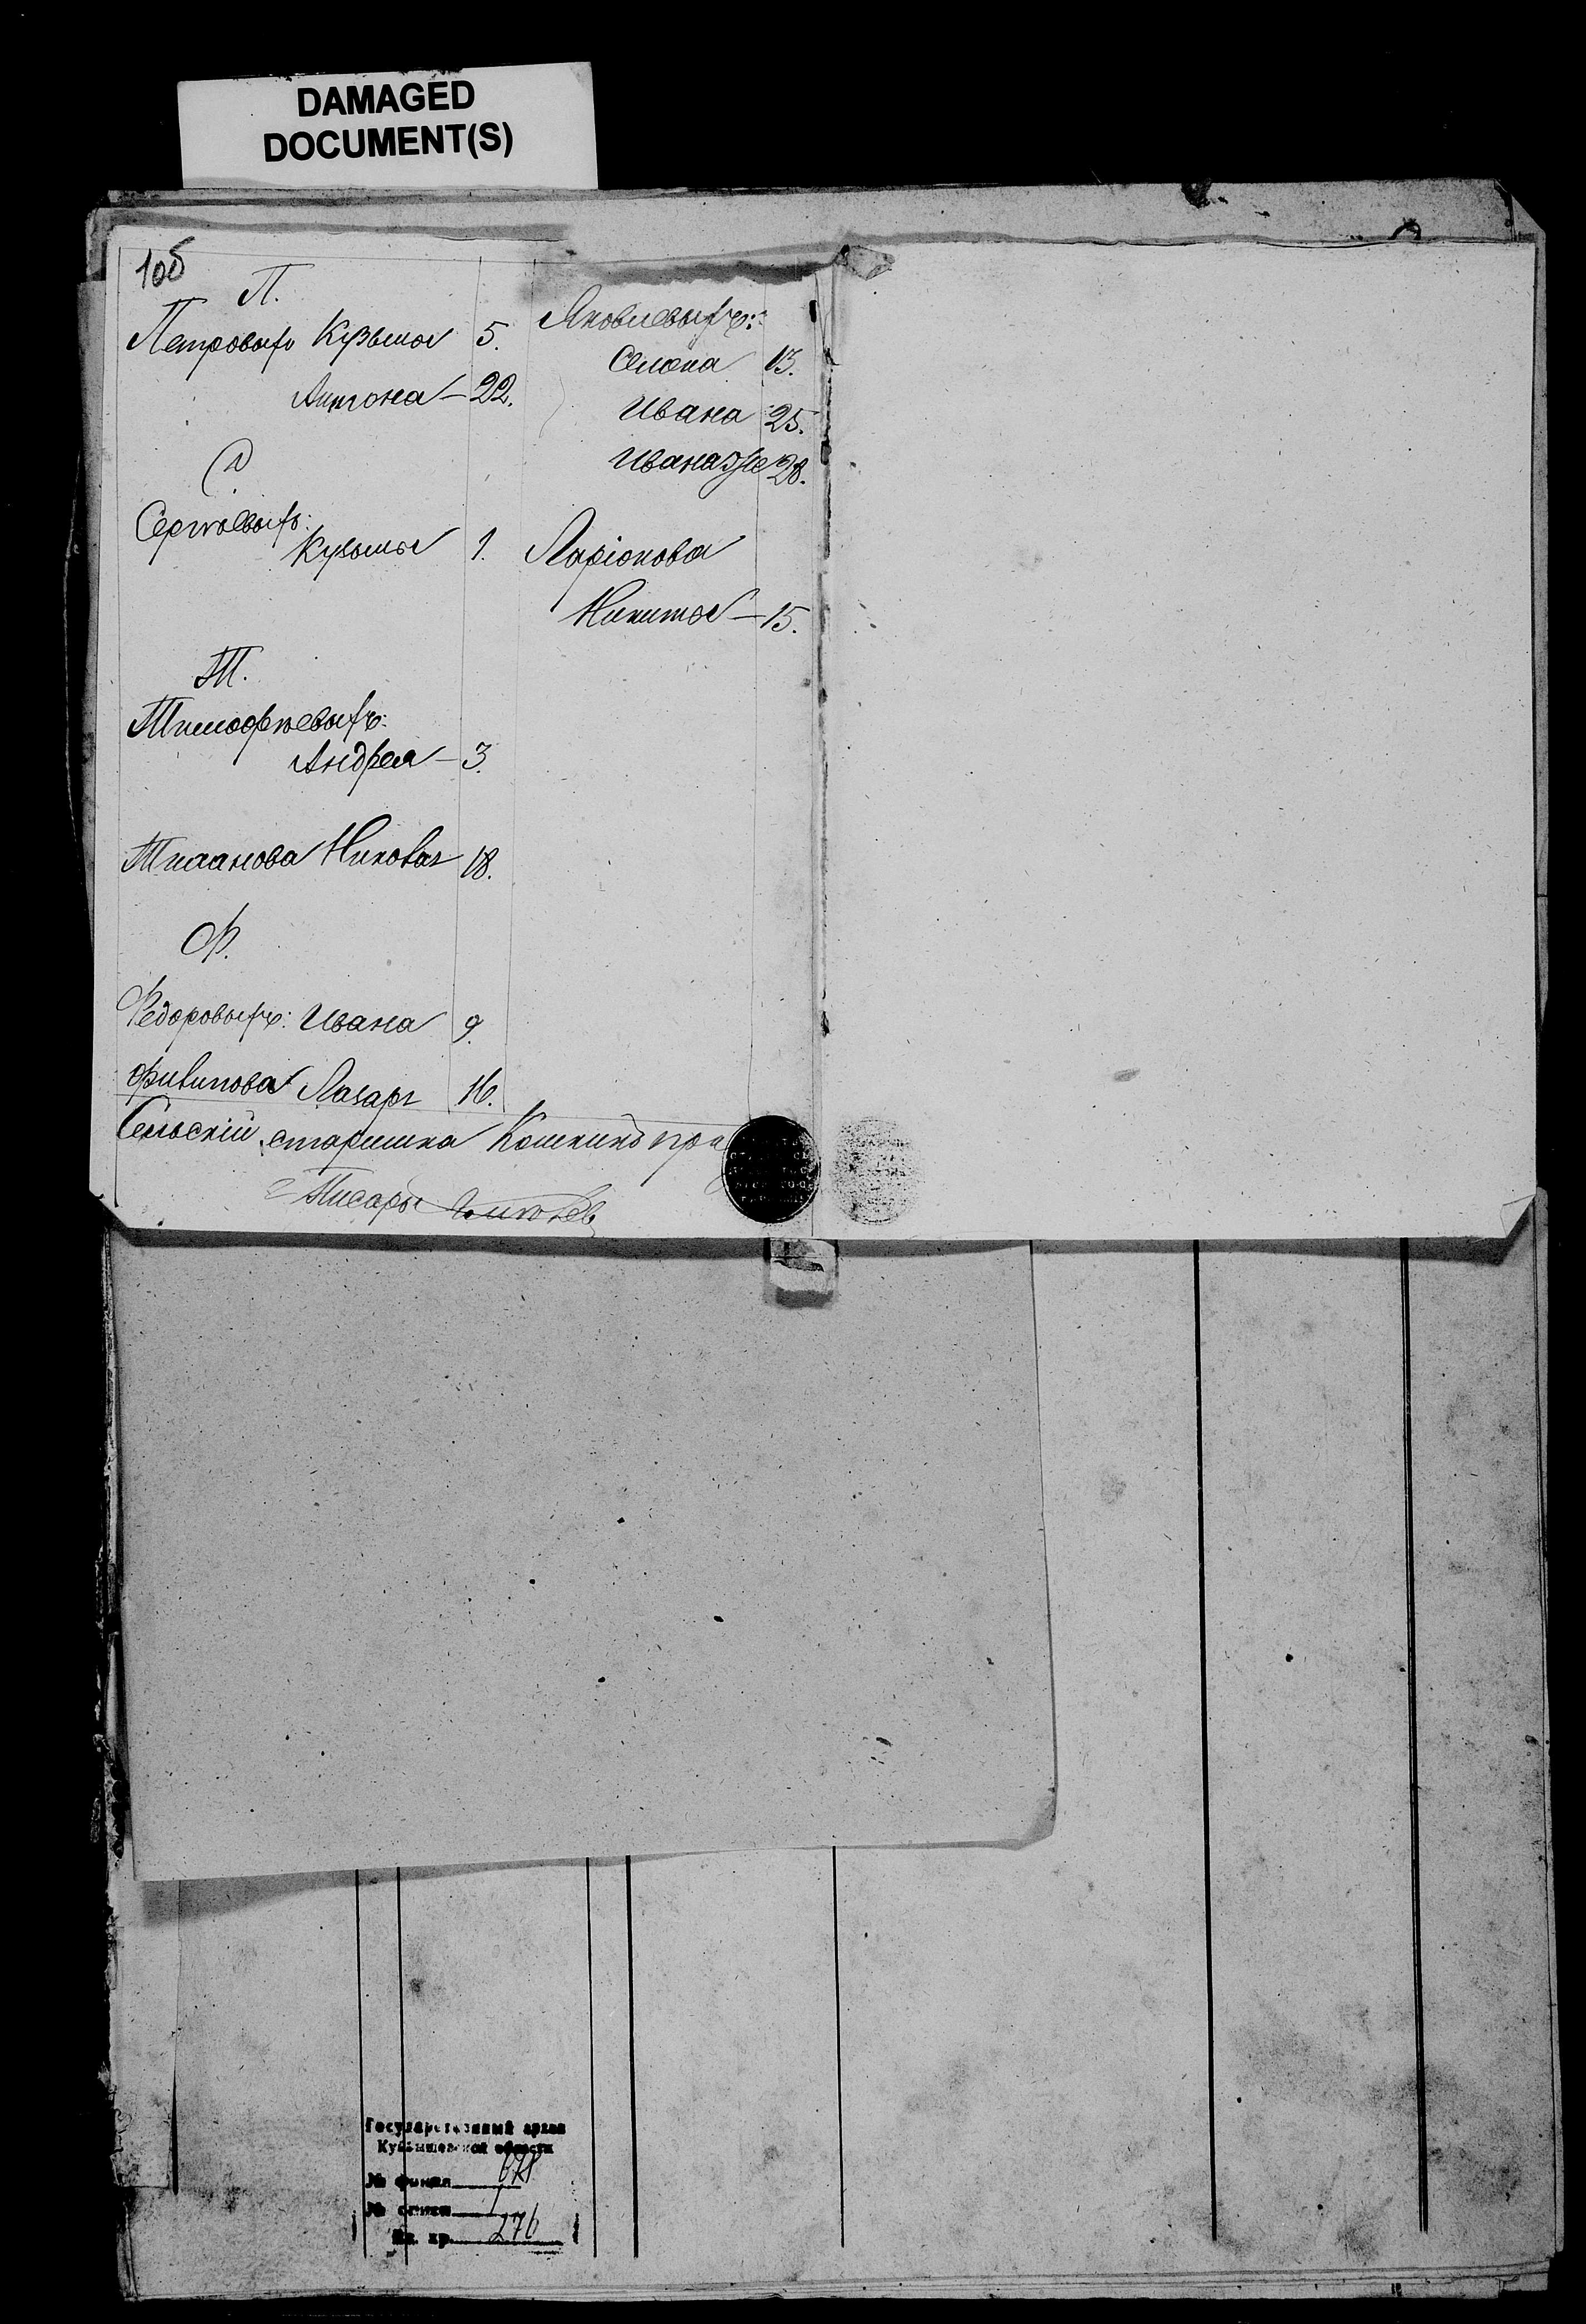 DAMAGED
DOCUMENT(S)
10б
П.
Петровыхъ Кузьмы 5.
Антона — 22.
С.
Сергѣевыхъ:
Кузьмы 1.
Т.
Тимофѣевыхъ:
Андрея — 3.
Николая 18.
Ф.
Федоровыхъ: Ивана 9.
Филипова Лазаря 16.
Яковлевыхъ:
Семена 13.
Ивана 25.
Ивана же 28.
Ларіонова
Никиты — 15.
Сельскій старшина Кошкинъ при
Писарь
Государственный архив
Куйбышевской области
№ фонда 678
№ описи 1
Ед. хр. 276